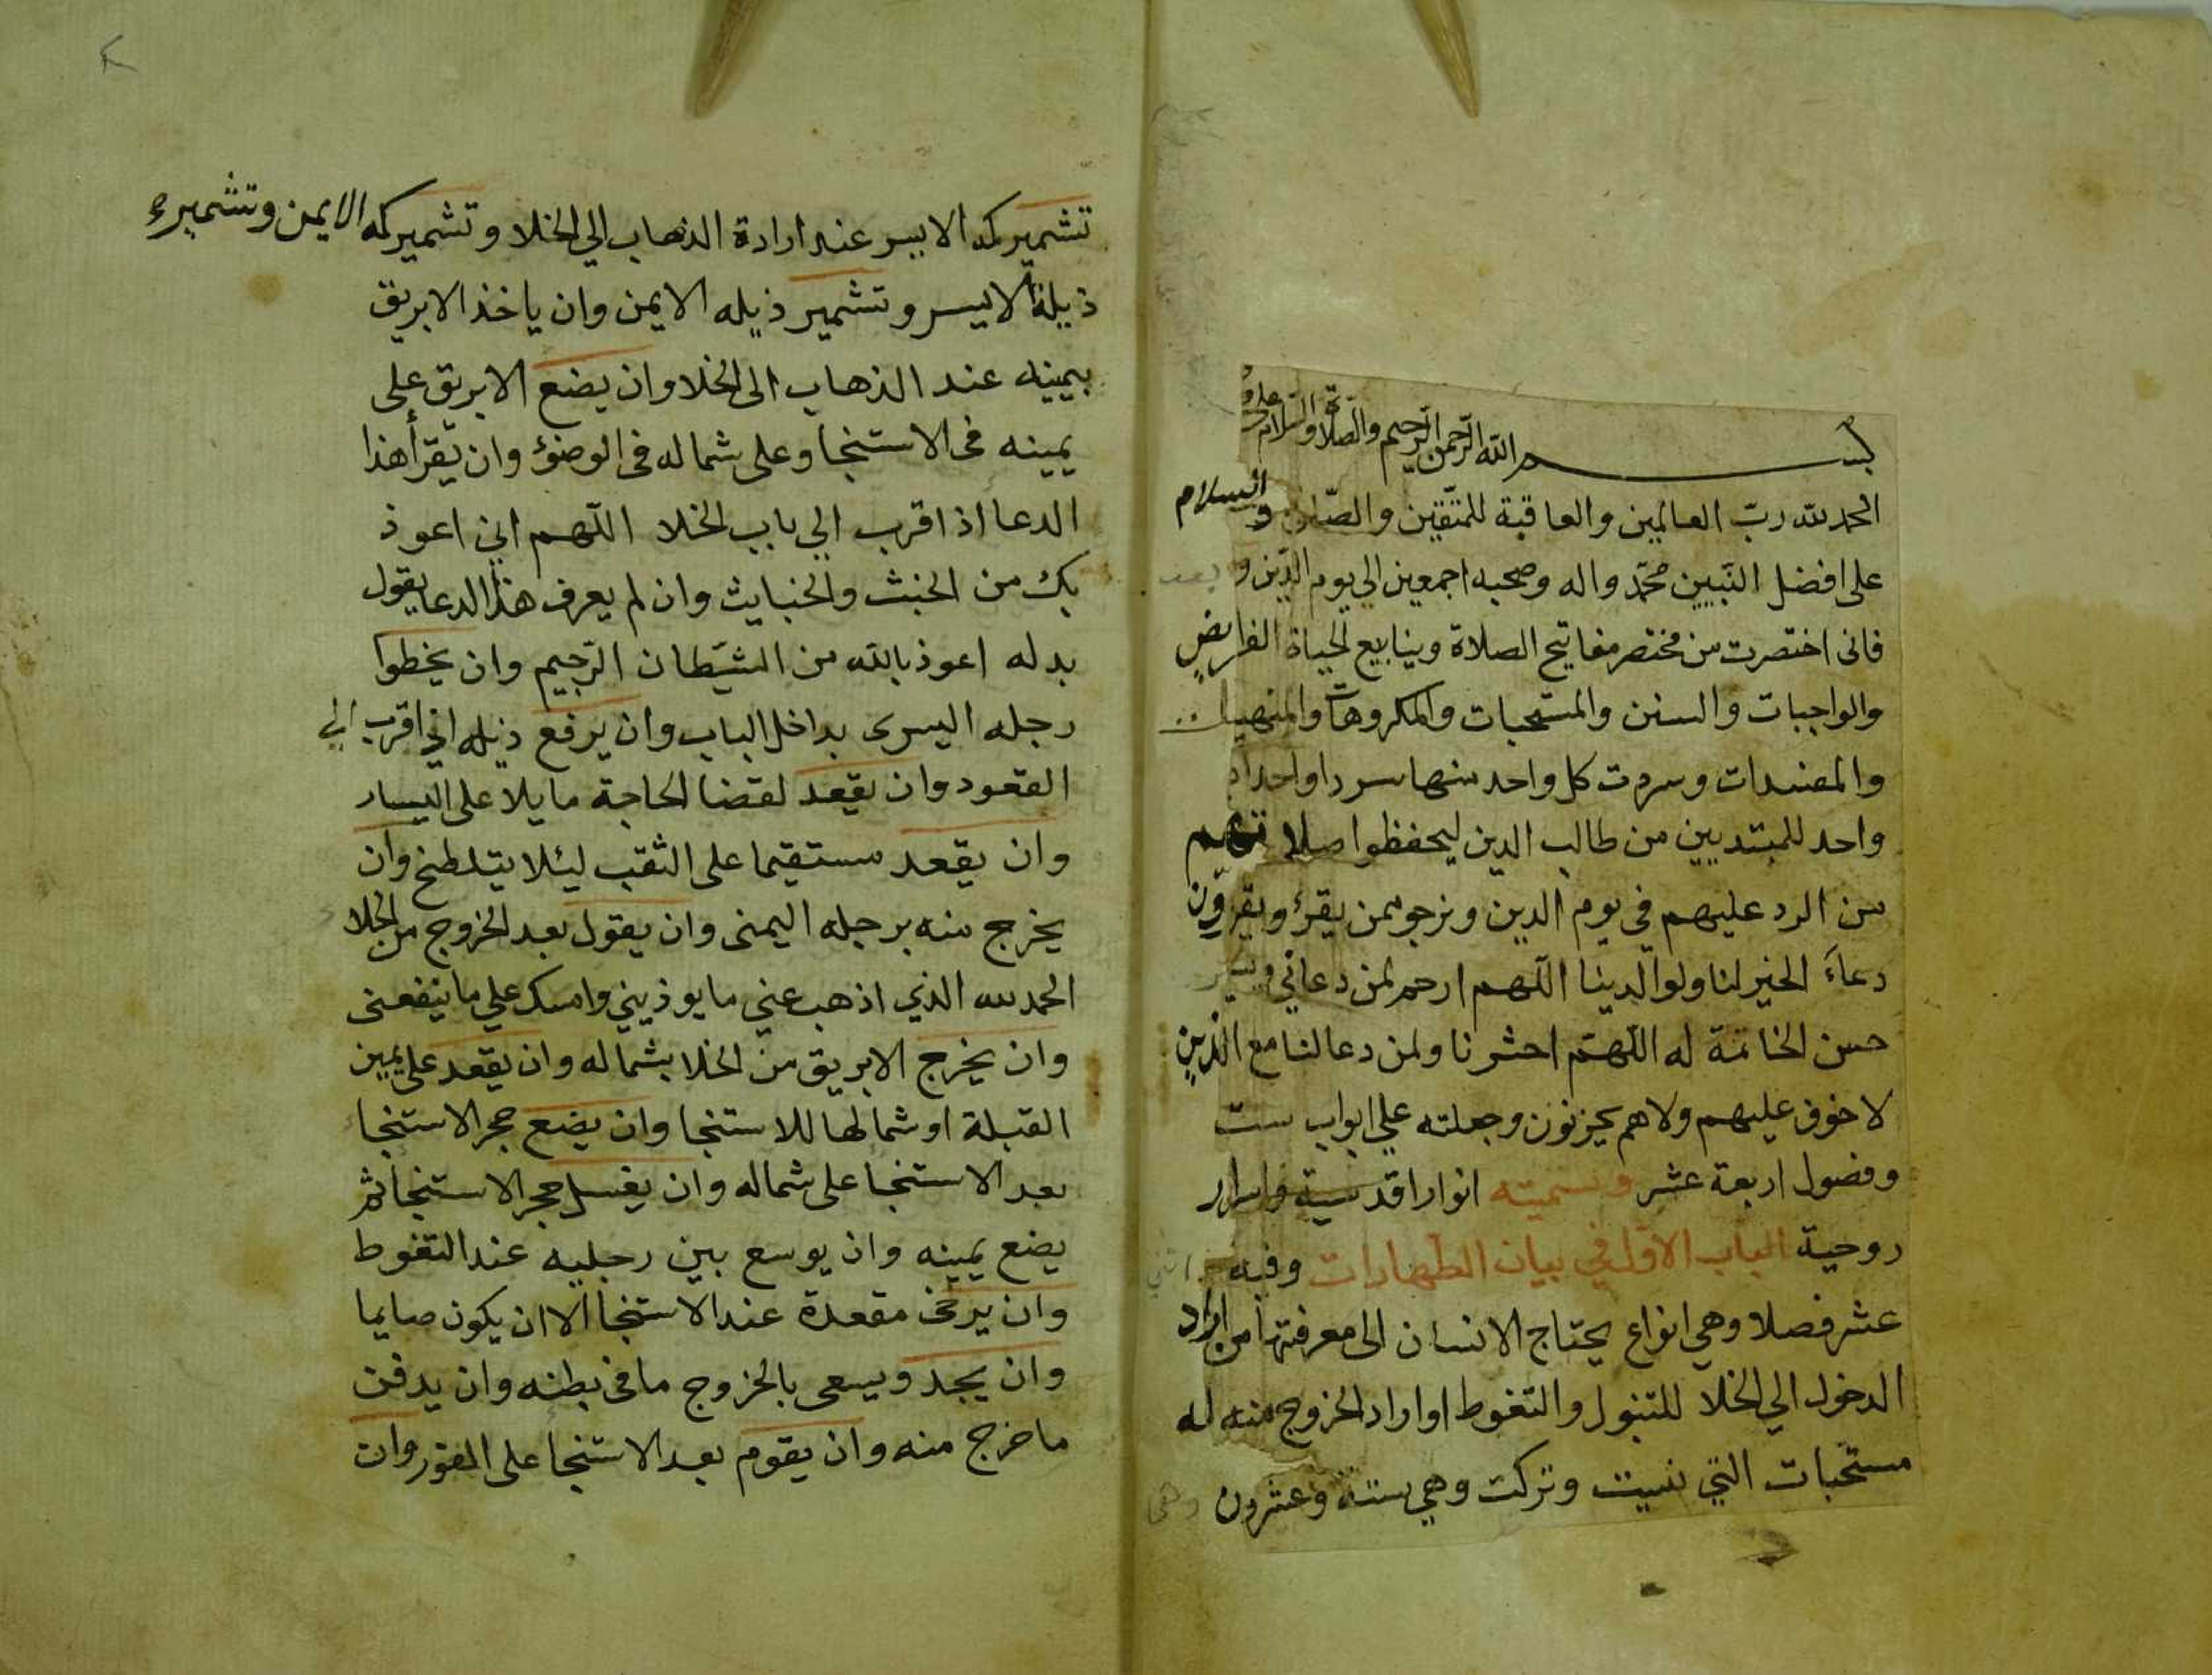 بسم الله الرحمن الرحيم والصلاة والسلام على
الحمد لله ربّ العالمين والعاقبة للمتّقين والصّلاة والسلام
على افضل النّبيين محمّد واله وصحبه اجمعين الي يوم الدّين و بعد
فانى اختصرت من مختصر مفاتيح الصلاة وينابيع الحياة الفرايض
والواجبات والسنن والمستحبات والمكروهات والمنهيات
والمفسدات وسردت كل واحد منها سردا واحدا
واحد للمبتديين من طالب الدين ليحفظوا صلاتهم
من الرد عليهم في يوم الدين ونرجو ممن يقرؤ ويقرؤن
دعاءَ الخير لنا ولوالدينا اللّهم ارحم لمن دعاني ويسر
حسن الخاتمة له اللّهمّ احشرنا ولمن دعا لنا مع الذين
لا خوف عليهم ولا هم يحزنون وجعلته علي ابواب ست
وفصول اربعة عشر وسميته انوارا قدسية واسرار
روحية الباب الاوّل في بيان الطّهارات وفيه اثنى
عشر فصلا وهي انواع يحتاج الانسان الى معرفتها من اراد
الدخول الي الخلا للتبول والتغوط او اراد الخروج منه له
مستحبات التي نسيت وتركت وهي ستة وعشرون
وهى
تشمير كمه الايسر عند ارادة الذهاب الي الخلا وتشمير كمه الايمن وتشميره
ذيله الايسر وتشمير ذيله الايمن وان ياخذ الابريق
بيمينه عند الذهاب الى الخلا وان يضع الابريق على
يمينه فى الاستنجا وعلى شماله فى الوضؤ وان يقرأ هذا
الدعا اذا قرب الي باب الخلا اللّهم اني اعوذ
بك من الخبث والخبايث وان لم يعرف هذا الدعا يقول
بدله اعوذ بالله من الشيّطان الرّجيم وان يخطوا
رجله اليسرى بداخل الباب وان يرفع ذيله اذا قرب الي
القعود وان يقعد لقضا الحاجة مايلا على اليسار
وان يقعد مستقيما على الثقب ليئلا يتلطخ وان
يخرج منه برجله اليمنى وان يقول بعد الخروج من الخلا
الحمد لله الذي اذهب عني ما يوذيني وامسك علي ما ينفعنى
وان يخرج الابريق من الخلا بشماله وان يقعد على يمين
القبلة او شمالها للاستنجا وان يضع حجر الاستنجا
بعد الاستنجا على شماله وان يغسل حجر الاستنجا ثم
يضع يمينه وان يوسع بين رجليه عند التغوط
وان يرخى مقعدة عند الاستنجا الا ان يكون صايما
وان يجد ويسعى بالخروج ما فى بطنه وان يدفن
ما خرج منه وان يقوم بعد الاستنجا على الفور وان